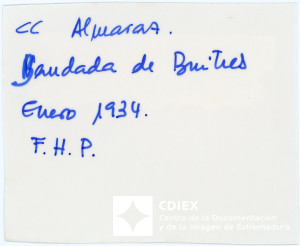 CC Almaraz.
Bandada de Buitres
Enero 1934.
F. H. P.
CDIEX
Centro de la Documentación
y de la Imagen de Extremadura